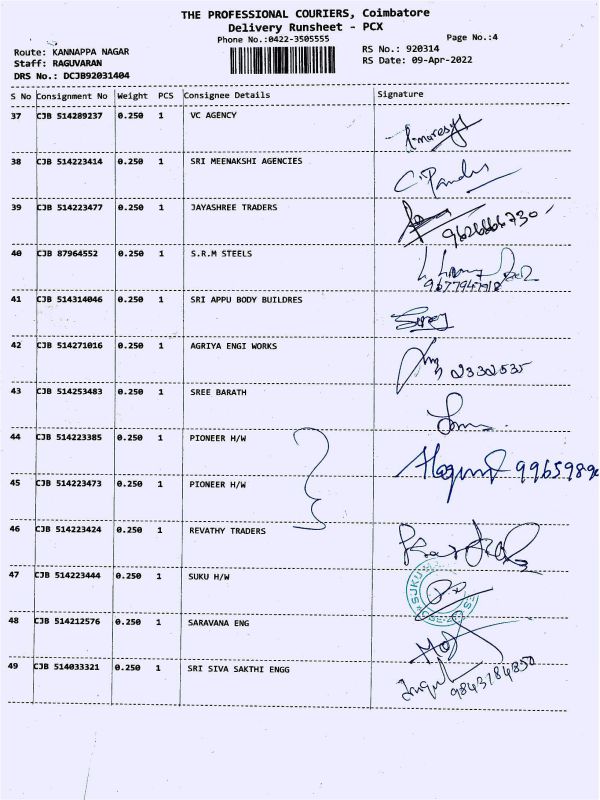 THE PROFESSIONAL COURIERS, Coimbatore
Delivery Runsheet - PCX
Phone No.:0422-3505555
Page No.:4
Route: KANNAPPA NAGAR
RS No.: 920314
Staff: RAGUVARAN
RS Date: 09-Apr-2022
DRS No.: DCJB92031404
S No Consignment No Weight PCS Consignee Details Signature
37 CJB 514289237 0.250 1 VC AGENCY
38 CJB 514223414 0.250 1 SRI MEENAKSHI AGENCIES
39 CJB 514223477 0.250 1 JAYASHREE TRADERS
9626666730
40 CJB 87964552 0.250 1 S.R.M STEELS
41 CJB 514314046 0.250 1 SRI APPU BODY BUILDRES
42 CJB 514271016 0.250 1 AGRIYA ENGI WORKS
2332535
43 CJB 514253483 0.250 1 SREE BARATH
44 CJB 514223385 0.250 1 PIONEER H/W
45 CJB 514223473 0.250 1 PIONEER H/W
46 CJB 514223424 0.250 1 REVATHY TRADERS
47 CJB 514223444 0.250 1 SUKU H/W
48 CJB 514212576 0.250 1 SARAVANA ENG
49 CJB 514033321 0.250 1 SRI SIVA SAKTHI ENGG
9843184850